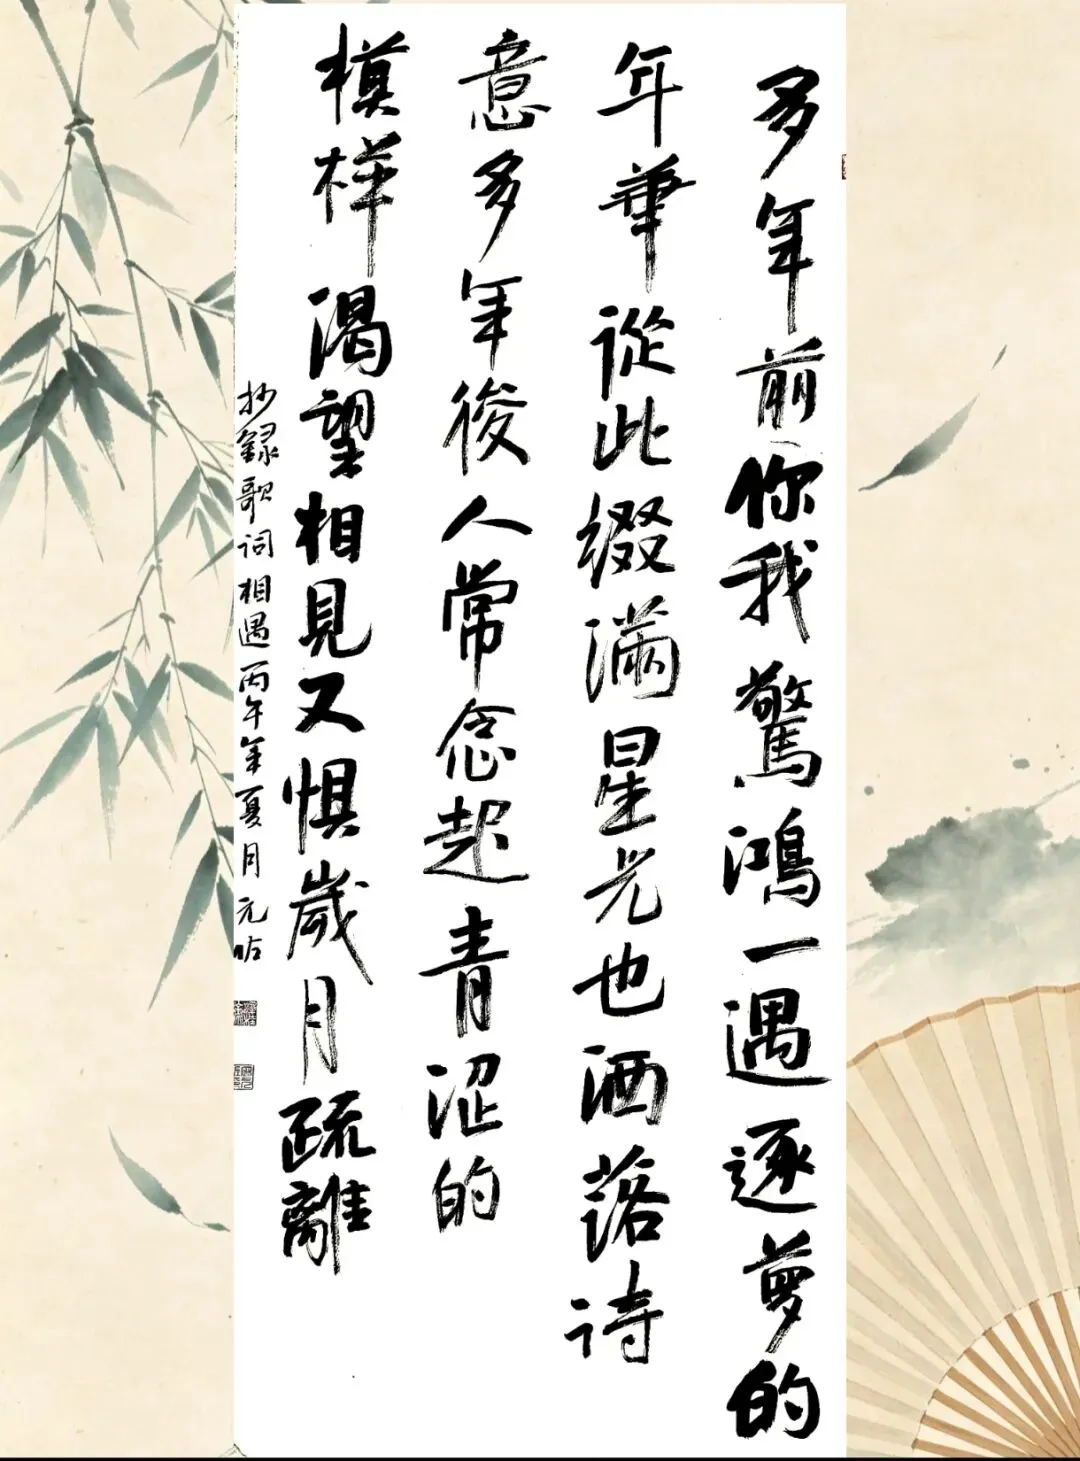 多年前你我驚鴻一遇逐夢的
年華從此缀滿星光也洒落诗
意多年後人常念起青涩的
模样渴望相見又惧歲月疏離
抄録歌词相遇丙午年夏月元